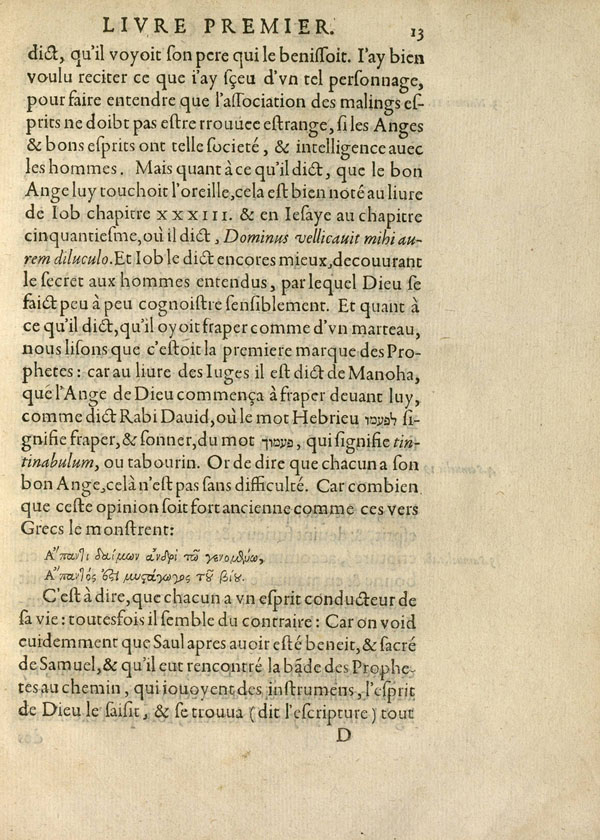 LIVRE PREMIER. 13
dict, qu'il voyoit ſon pere qui le beniſſoit. I'ay bien
voulu reciter ce que i'ay ſçeu d'vn tel perſonnage,
pour faire entendre que l'aſſociation des malings eſ-
prits ne doibt pas eſtre rrouuee eſtrange, ſi les Anges
& bons eſprits ont telle ſocieté, & intelligence auec
les hommes. Mais quant à ce qu'il dict, que le bon
Ange luy touchoit l'oreille, cela eſt bien noté au liure
de Iob chapitre XXXIII. & en Ieſaye au chapitre
cinquantieſme, où il dict, Dominus vellicauit mihi au-
rem diluculo. Et Iob le dict encores mieux, decouurant
le secret aux hommes entendus, par lequel Dieu ſe
faict peu à peu cognoiſtre ſenſiblement. Et quant à
ce qu'il dict, qu'il oyoit fraper comme d'vn marteau,
nous liſons que c'eſtoit la premiere marque des Pro-
phetes: car au liure des Iuges il eſt dict de Manoha,
que l'Ange de Dieu commença à fraper deuant luy,
comme dict Rabi Dauid, où le mot Hebrieu לפעמו ſi-
gnifie fraper, & ſonner, du mot פעמון, qui ſignifie tin-
tinabulum, ou tabourin. Or de dire que chacun a ſon
bon Ange, celà n'eſt pas ſans difficulté. Car combien
que ceſte opinion ſoit fort ancienne comme ces vers
Grecs le monſtrent:
Ἅπαντι δαίμων ἀνδρὶ τῷ γενομένῳ,
Ἅπαντός ἐστι μυσταγωγὸς τοῦ βίου.
C'eſt à dire, que chacun a vn eſprit conducteur de
ſa vie: toutesfois il ſemble du contraire: Car on void
euidemment que Saul apres auoir eſté beneit, & ſacré
de Samuel, & qu'il eut rencontré la bãde des Prophe-
tes au chemin, qui iouoyent des inſtrumens, l'eſprit
de Dieu le ſaiſit, & se trouua (dit l'eſcripture) tout
D